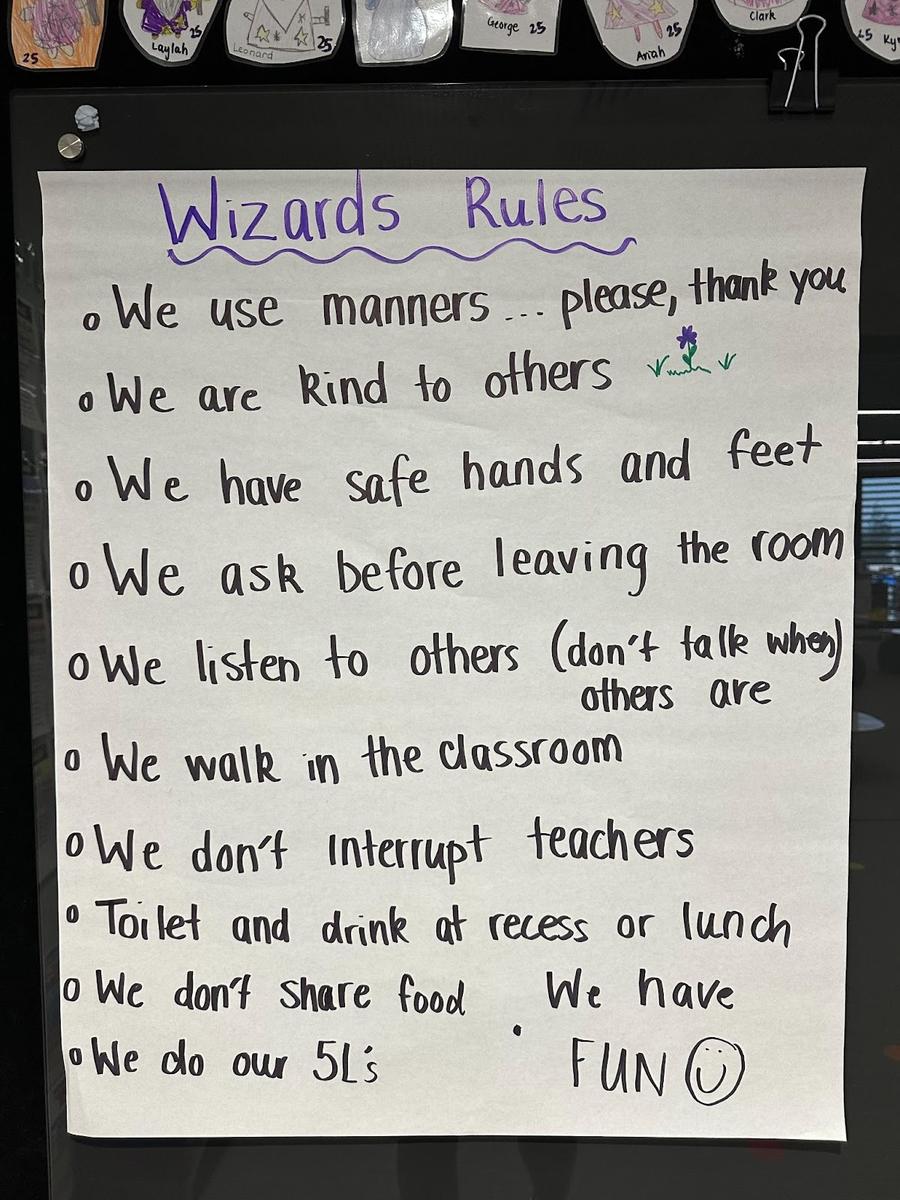 25
Laylah 25
Leonard 25
George 25
Ariah 25
Clark
25 Ky
Wizards Rules
o We use manners ... please, thank you
o We are kind to others
o We have safe hands and feet
o We ask before leaving the room
o We listen to others (don't talk when)
others are
o We walk in the classroom
o We don't interrupt teachers
o Toilet and drink at recess or lunch
o We don't share food
o We do our 5L's
. We have
FUN